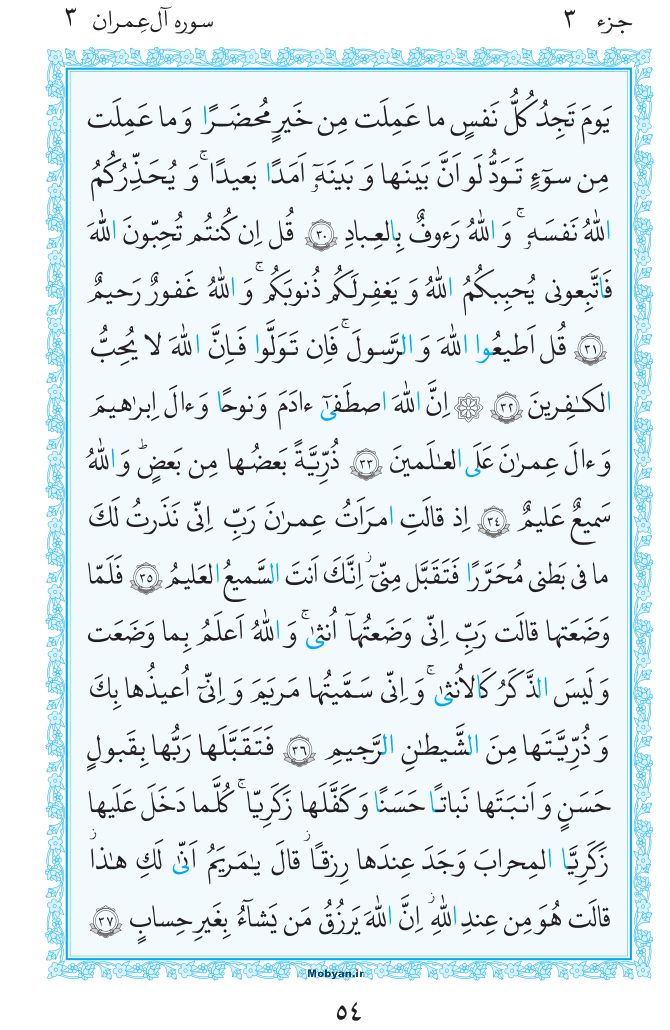 جزء ٣ سوره آل‌عِمران ٣
يَومَ تَجِدُ كُلُّ نَفسٍ ما عَمِلَت مِن خَيرٍ مُحضَرًا وَ ما عَمِلَت
مِن سوٓءٍ تَوَدُّ لَو اَنَّ بَينَها وَ بَينَهٓۥ اَمَدًا بَعيدًا ۚ وَ يُحَذِّرُكُمُ
اللهُ نَفسَهۥ ۚ وَ اللهُ رَءوفٌ بِالعِبادِ ﴿٣٠﴾ قُل اِن كُنتُم تُحِبّونَ اللهَ
فَاتَّبِعونى يُحبِبكُمُ اللهُ وَ يَغفِرلَكُم ذُنوبَكُم ۚ وَ اللهُ غَفورٌ رَحيمٌ
﴿٣١﴾ قُل اَطيعُوا اللهَ وَ الرَّسولَ ۚ فَاِن تَوَلَّوا فَاِنَّ اللهَ لا يُحِبُّ
الكٰفِرينَ ﴿٣٢﴾ ۞ اِنَّ اللهَ اصطَفىٰٓ ءادَمَ وَنوحًا وَءالَ اِبرٰهيمَ
وَ ءالَ عِمرٰنَ عَلَى العٰلَمينَ ﴿٣٣﴾ ذُرِّيَّةً بَعضُها مِن بَعضٍ ؕ وَ اللهُ
سَميعٌ عَليمٌ ﴿٣٤﴾ اِذ قالَتِ امرَاَتُ عِمرٰنَ رَبِّ اِنّى نَذَرتُ لَكَ
ما فى بَطنى مُحَرَّرًا فَتَقَبَّل مِنّىٓ ۖ اِنَّكَ اَنتَ السَّميعُ العَليمُ ﴿٣٥﴾ فَلَمّا
وَضَعَتها قالَت رَبِّ اِنّى وَضَعتُهآ اُنثىٰ ۚ وَ اللهُ اَعلَمُ بِما وَضَعَت
وَ لَيسَ الذَّكَرُ كَالاُنثىٰ ۚ وَ اِنّى سَمَّيتُها مَريَمَ وَ اِنّىٓ اُعيذُها بِكَ
وَ ذُرِّيَّتَها مِنَ الشَّيطٰنِ الرَّجيمِ ﴿٣٦﴾ فَتَقَبَّلَها رَبُّها بِقَبولٍ
حَسَنٍ وَ اَنبَتَها نَباتًا حَسَنًا وَ كَفَّلَها زَكَرِيّا ۚ كُلَّما دَخَلَ عَلَيها
زَكَرِيَّا المِحرابَ وَجَدَ عِندَها رِزقًا ۖ قالَ يٰمَريَمُ اَنّىٰ لَكِ هٰذا ۖ
قالَت هُوَ مِن عِندِ اللهِ ۖ اِنَّ اللهَ يَرزُقُ مَن يَشآءُ بِغَيرِ حِسابٍ ﴿٣٧﴾
Mobyan.ir
٥٤